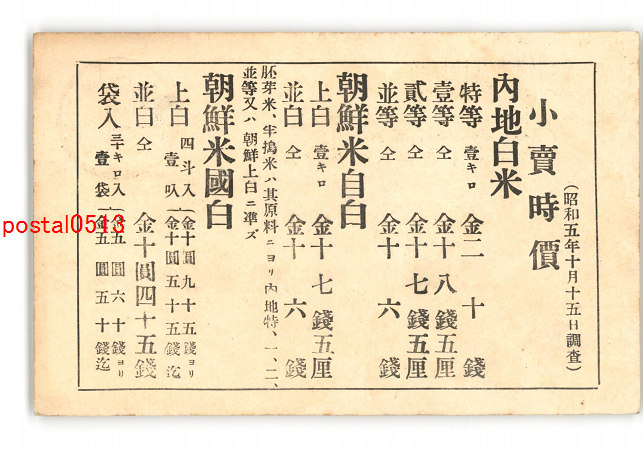 小賣時價
(昭和五年十月十五日調査)
內地白米
特等 壹キロ 金二十錢
壹等 仝 金十八錢五厘
貳等 仝 金十七錢五厘
並等 仝 金十六錢
朝鮮米白白
上白 壹キロ 金十七錢五厘
並白 仝 金十六錢
胚芽米、半搗米ハ其原料ニヨリ內地特、一、二、
並等又ハ朝鮮上白ニ準ズ
朝鮮米國白
上白 四斗入 壹叺 金十圓九十五錢ヨリ
金十圓五十五錢迄
並白 仝 金十圓四十五錢
袋入 三十キロ入 壹袋 金五圓六十錢ヨリ
金五圓五十錢迄
postal0513